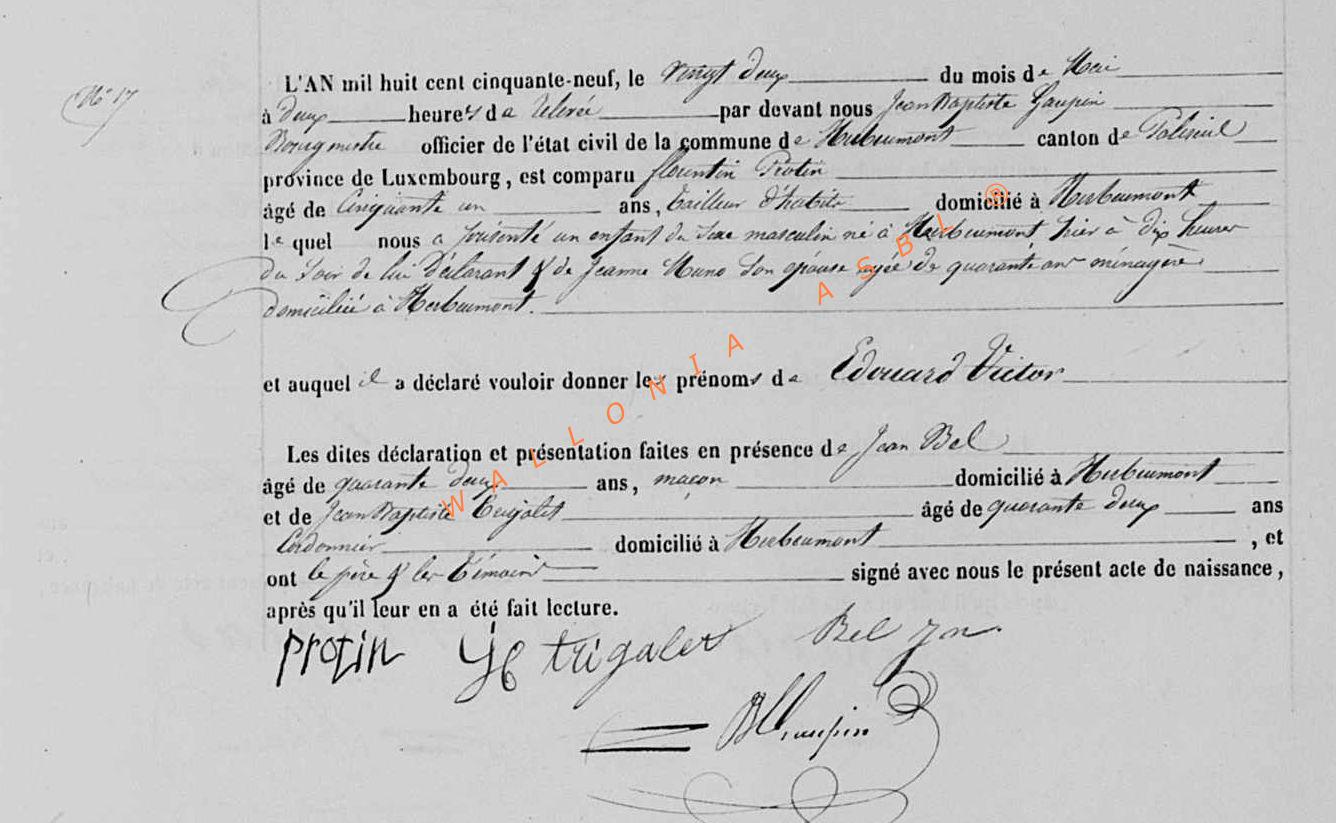 N° 17
L'AN mil huit cent cinquante-neuf, le vingt deux du mois de Mai
à deux heures de relevée par devant nous Jean Baptiste Gaupin
Bourgmestre officier de l'état civil de la commune de Herbeumont canton de Paliseul
province de Luxembourg, est comparu florentin Protin
âgé de Cinquante un ans, tailleur d'habits domicilié à Herbeumont
lequel nous a présenté un enfant du sexe masculin né à Herbeumont hier à dix heures
du soir de lui déclarant & de Jeanne Muno son épouse agée de quarante ans ménagère
domiciliée à Herbeumont.
et auquel il a déclaré vouloir donner les prénoms de Edouard Victor
Les dites déclaration et présentation faites en présence de Jean Bel
âgé de quarante deux ans, maçon domicilié à Herbeumont
et de Jean Baptiste Trigalet âgé de quarante deux ans
Cordonnier domicilié à Herbeumont, et
ont le père & les témoins signé avec nous le présent acte de naissance,
après qu'il leur en a été fait lecture.
protin trigalet Bel
WALLONIA ASBL ®